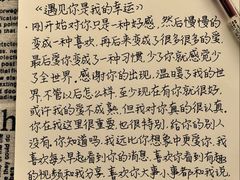 《遇见你是我的幸运》
·刚开始对你只是一种好感，然后慢慢的
变成一种喜欢，再后来变成了很多很多的爱，
最后爱变成了一种习惯，少了你就感觉少
了全世界，感谢你的出现，温暖了我的世
界，不管以后怎么样，至少现在有你就很好，
或许我的爱不成熟，但我对你真的很认真，
你在我这里很重要，也很特别，给你的别人
没有，你知道吗，我远比你想象中更爱你，我
喜欢每天早起看到你的消息，喜欢你看到有趣
的视频和我分享，喜欢你大事小事都和我说，